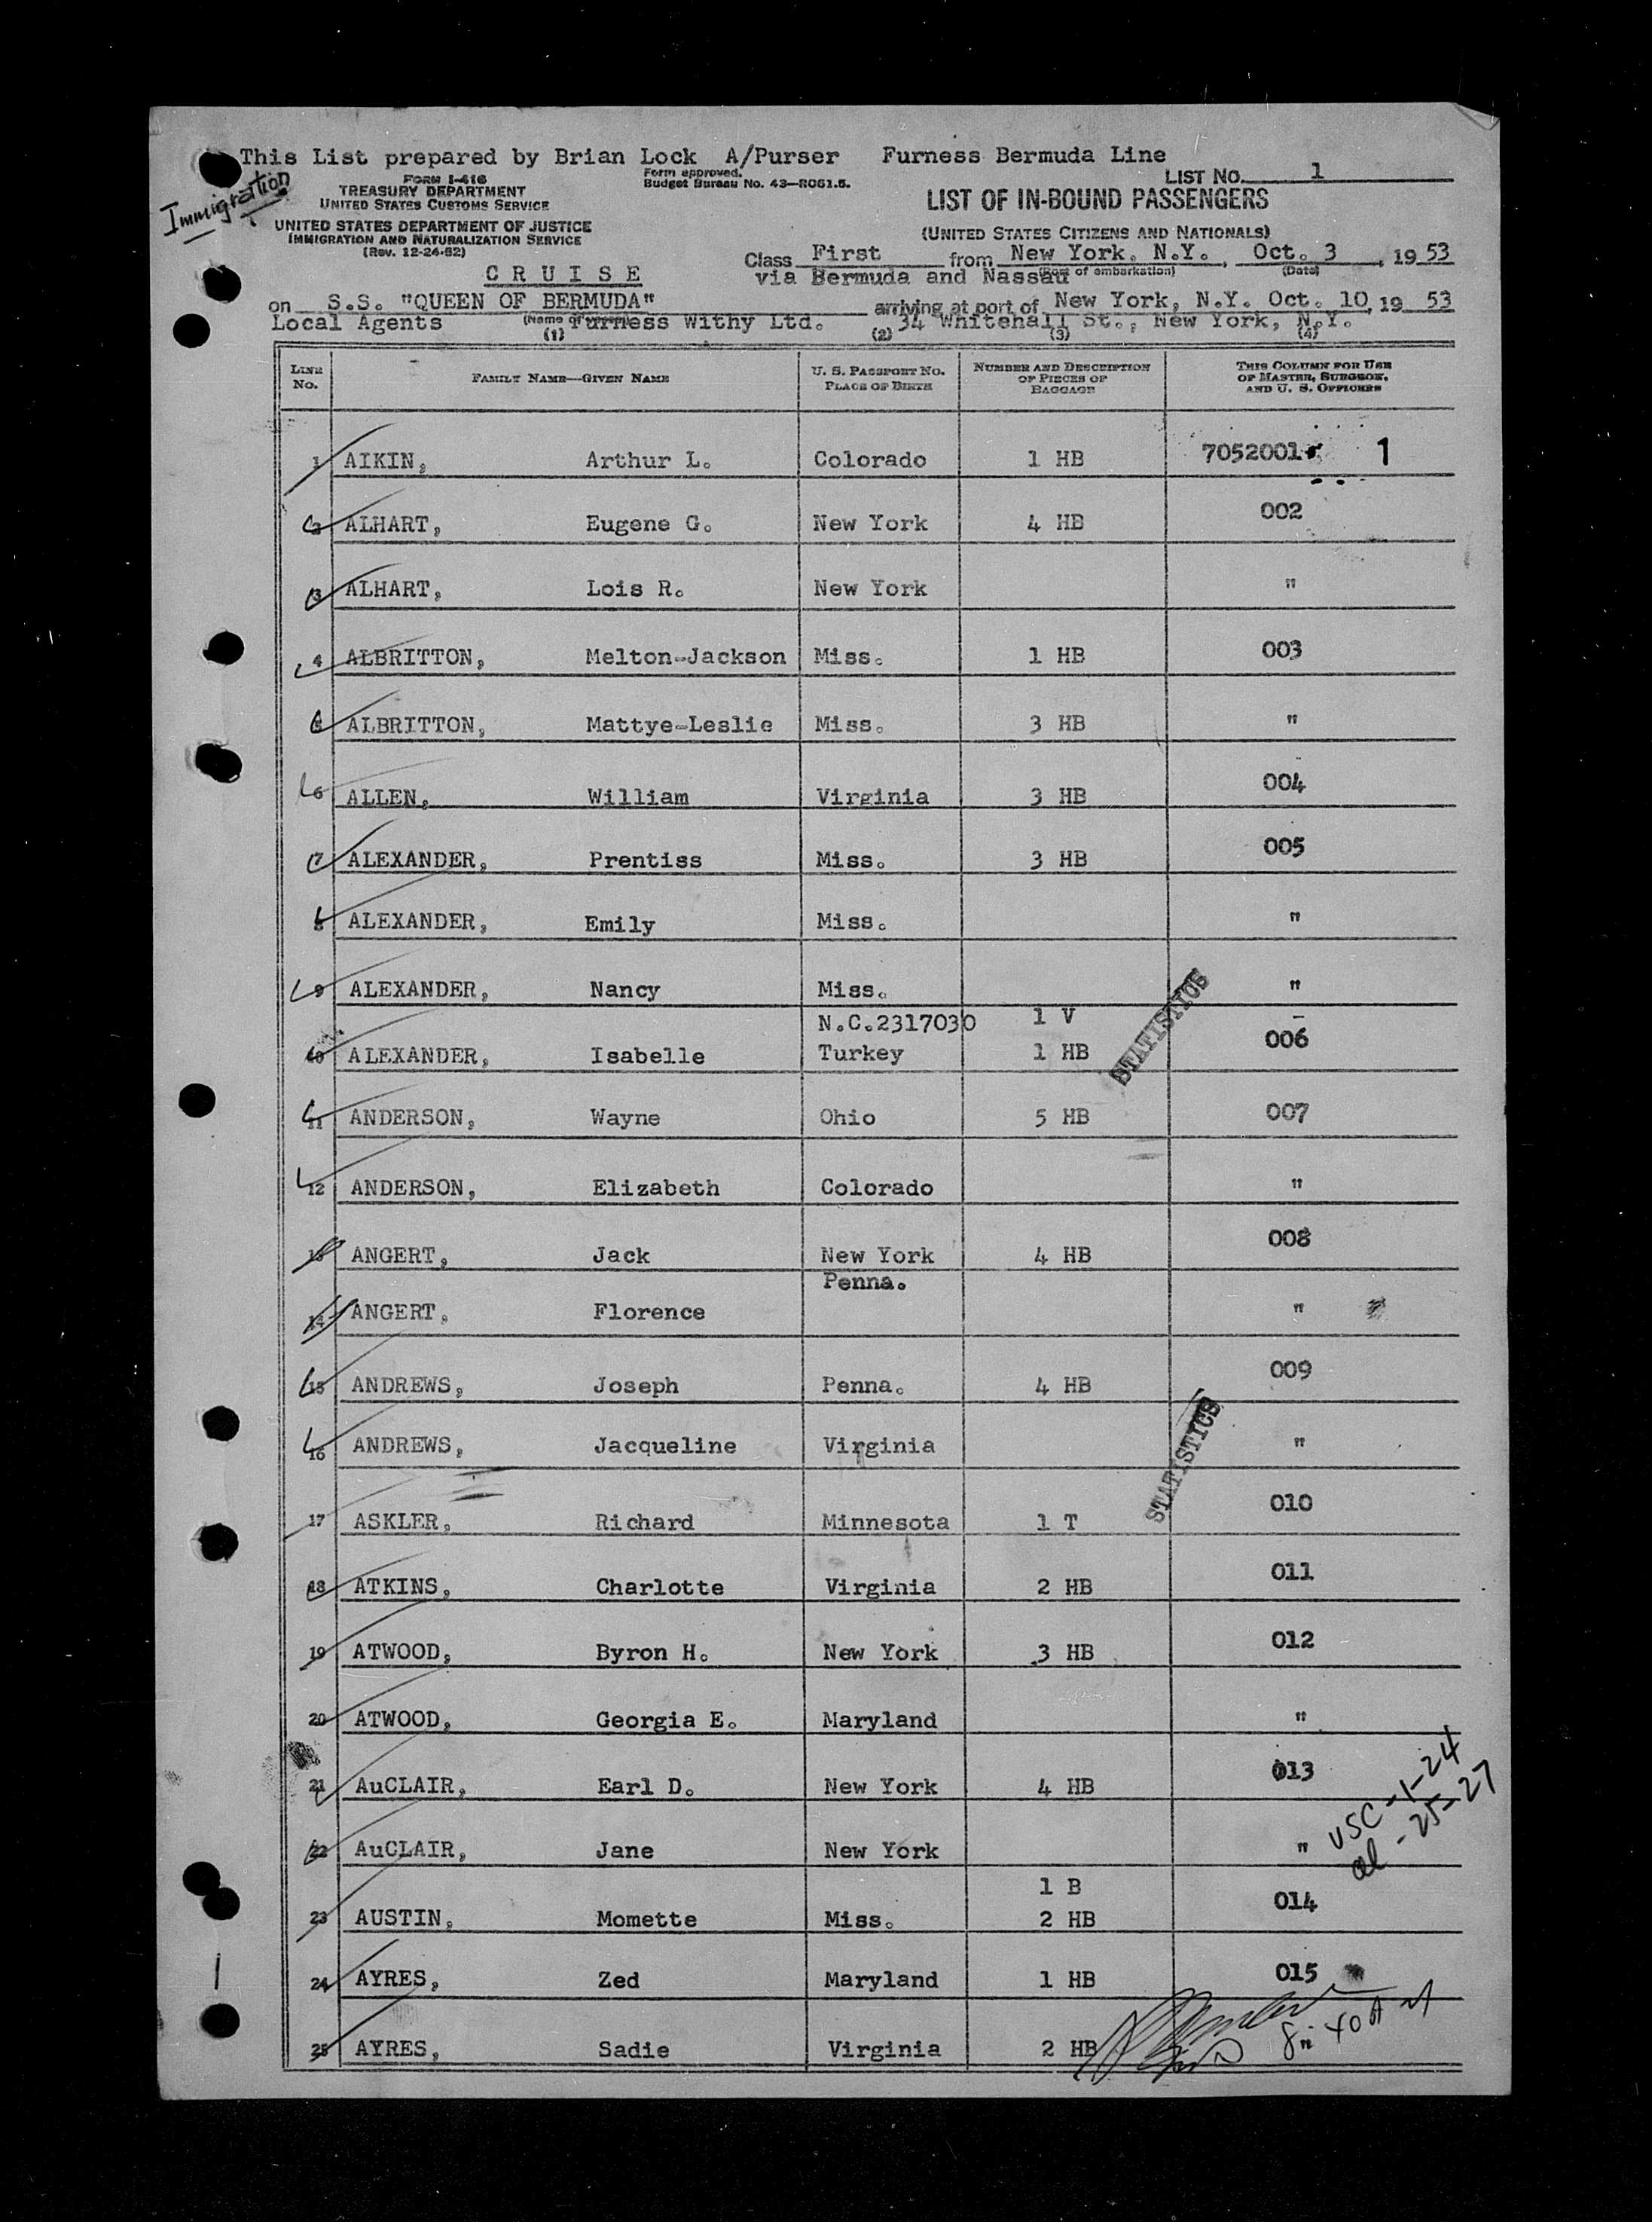 This List prepared by Brian Lock A/Purser Furness Bermuda Line
Immigration
FORM I-416
TREASURY DEPARTMENT
UNITED STATES CUSTOMS SERVICE
UNITED STATES DEPARTMENT OF JUSTICE
IMMIGRATION AND NATURALIZATION SERVICE
(Rev. 12-24-52)
Form approved.
Budget Bureau No. 43—R061.5.
LIST NO. 1
LIST OF IN-BOUND PASSENGERS
(UNITED STATES CITIZENS AND NATIONALS)
Class First from New York, N.Y., Oct. 3, 1953
(Port of embarkation) (Date)
C R U I S E via Bermuda and Nassau
on S.S. "QUEEN OF BERMUDA" arriving at port of New York, N.Y. Oct. 10, 1953
(Name of vessel)
Local Agents Furness Withy Ltd. 34 Whitehall St., New York, N.Y.
(1) (2) (3) (4)
LINE NO. FAMILY NAME—GIVEN NAME U. S. PASSPORT NO. PLACE OF BIRTH NUMBER AND DESCRIPTION OF PIECES OF BAGGAGE THIS COLUMN FOR USE OF MASTER, SURGEON, AND U. S. OFFICERS
1 AIKIN, Arthur L. Colorado 1 HB 7052001 1
2 ALHART, Eugene G. New York 4 HB 002
3 ALHART, Lois R. New York "
4 ALBRITTON, Melton-Jackson Miss. 1 HB 003
5 ALBRITTON, Mattye-Leslie Miss. 3 HB "
6 ALLEN, William Virginia 3 HB 004
7 ALEXANDER, Prentiss Miss. 3 HB 005
8 ALEXANDER, Emily Miss. "
9 ALEXANDER, Nancy Miss. "
N.C.2317030 1 V
10 ALEXANDER, Isabelle Turkey 1 HB 006
STATISTICS
11 ANDERSON, Wayne Ohio 5 HB 007
12 ANDERSON, Elizabeth Colorado "
13 ANGERT, Jack New York 4 HB 008
Penna.
14 ANGERT, Florence "
15 ANDREWS, Joseph Penna. 4 HB 009
16 ANDREWS, Jacqueline Virginia "
STATISTICS
17 ASKLER, Richard Minnesota 1 T 010
18 ATKINS, Charlotte Virginia 2 HB 011
19 ATWOOD, Byron H. New York 3 HB 012
20 ATWOOD, Georgia E. Maryland "
21 AuCLAIR, Earl D. New York 4 HB 013
USC-1-24
al-25-27
22 AuCLAIR, Jane New York "
1 B
23 AUSTIN, Momette Miss. 2 HB 014
24 AYRES, Zed Maryland 1 HB 015
25 AYRES, Sadie Virginia 2 HB "
8:40 AM